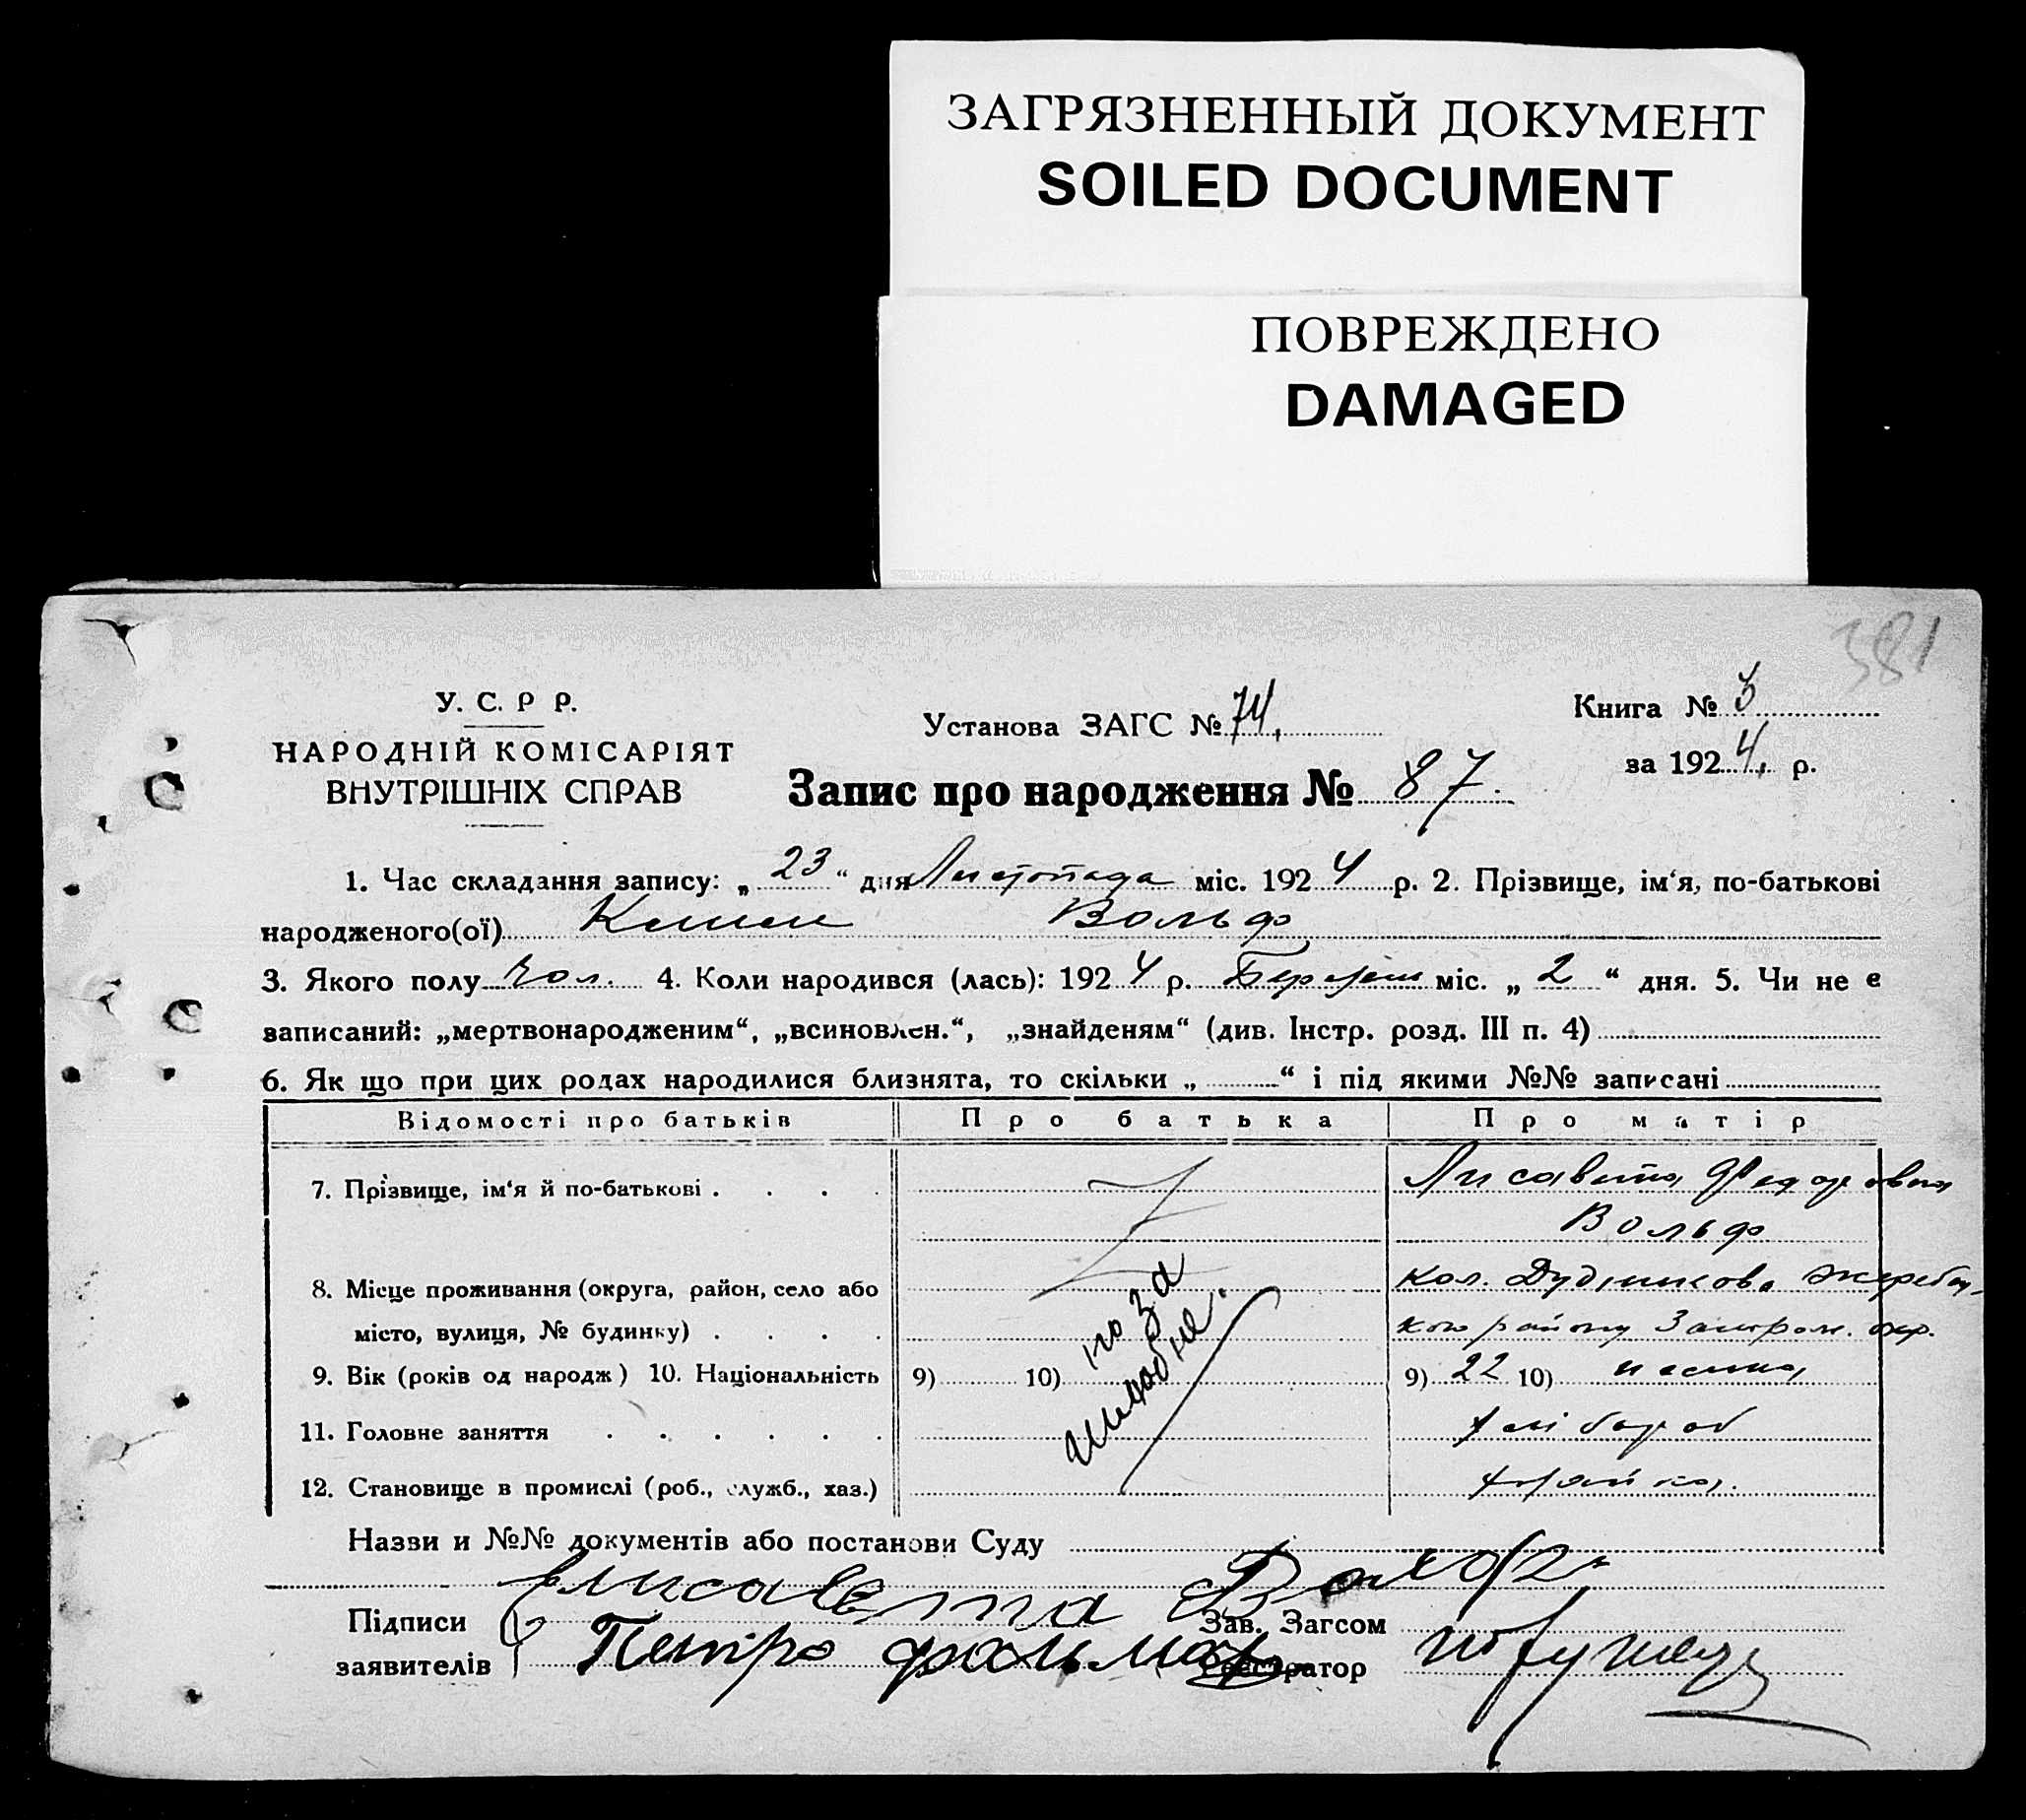 ЗАГРЯЗНЕННЫЙ ДОКУМЕНТ
SOILED DOCUMENT
ПОВРЕЖДЕНО
DAMAGED
381
У. С. Р Р.
НАРОДНІЙ КОМІСАРІЯТ
ВНУТРІШНІХ СПРАВ
Установа ЗАГС № 74.
Книга № 3
за 1924. р.
Запис про народження № 87.
1. Час складання запису: „23“ дня Листопада міс. 1924 р. 2. Прізвище, ім‘я, по-батькові
народженого(ої) Вольф
3. Якого полу чол. 4. Коли народився (лась): 1924 р. міс. „2“ дня. 5. Чи не є
записаний: „мертвонародженим“, „всиновлен.“, „знайденям“ (див. Інстр. розд. III п. 4)
6. Як що при цих родах народилися близнята, то скільки „ “ і під якими №№ записані
Відомості про батьків Про батька Про матір
7. Прізвище, ім‘я й по-батькові . . . . Лисавета Федоровна
Вольф
8. Місце проживання (округа, район, село або кол.
місто, вулиця, № будинку) . . . . району окр.
9. Вік (років од народж) 10. Національність 9) 10) 9) 22 10)
поза
шлюбне.
11. Головне заняття . . . . . . хлібороб
12. Становище в промислі (роб., служб., хаз.)
Назви и №№ документів або постанови Суду
Елисавета Вольф
Підписи Зав. Загсом
заявителів Петро Реєстратор